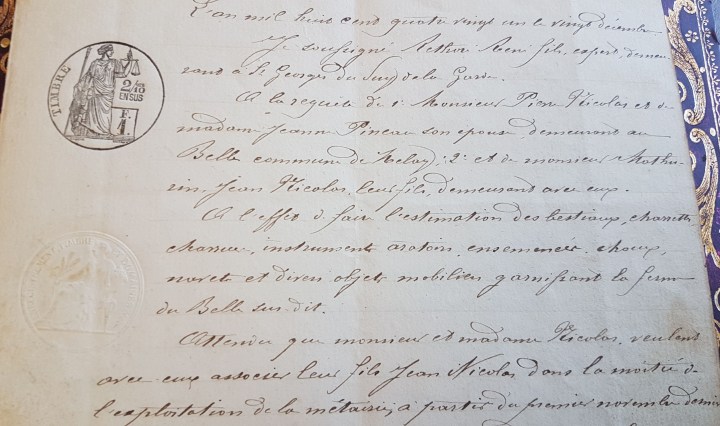 L'an mil huit cent quatre vingt un le vingt décembre
Je soussigné René fils, expert, demeu
rant à St Georges du Puy de la Garde.
A la requête de 1º Monsieur Pierre Nicolas et de
madame Jeanne Pineau son épouse demeurant au
Belle commune de Melay; 2º et de monsieur Mathu
rin, Jean Nicolas, leur fils, demeurant avec eux.
A l'effet de faire l'estimation des bestiaux, charrette
charrue, instruments aratoires, ensemencés, choux,
navets et divers objets mobiliers garnissant la ferme
du Belle sus-dit.
Attendu que monsieur et madame Nicolas, veulent
avec eux associer leur fils Jean Nicolas dans la moitié de
l'exploitation de la métairie, à partir du premier novembre dernier
TIMBRE
2/10
EN SUS
F.
1.